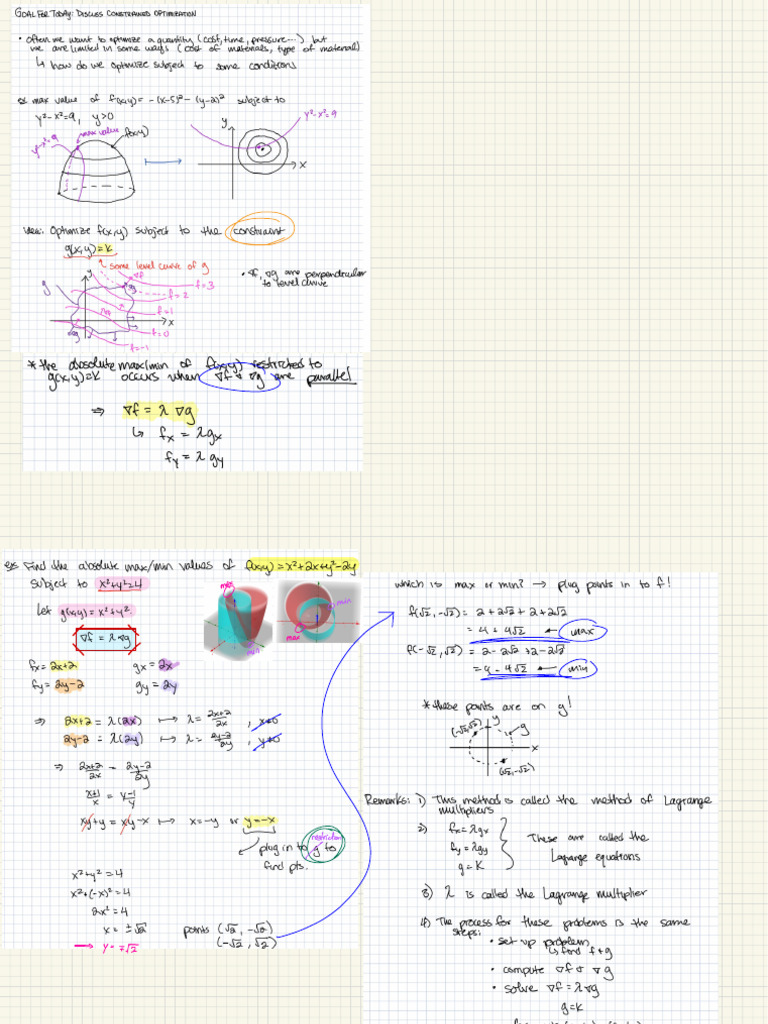 GOAL FOR TODAY: DISCUSS CONSTRAINED OPTIMIZATION
• Often we want to optimize a quantity (cost, time, pressure...) but
we are limited in some ways (cost of materials, type of material)
↳ how do we optimize subject to some conditions
ex max value of f(x,y) = -(x-5)² - (y-2)² subject to
y²-x²=9, y>0
y²-x²=9
max value
f(x,y)
y
x
y²-x²=9
Idea: Optimize f(x,y) subject to the constraint
g(x,y)=k
some level curve of g
g
y
∇f
∇g
f=3
f=2
f=1
f=0
f=-1
x
• ∇f, ∇g are perpendicular
to level curve
* the absolute max/min of f(x,y) restricted to
g(x,y)=k occurs when ∇f & ∇g are parallel
⇒ ∇f = λ ∇g
↳ fx = λgx
fy = λ gy
ex Find the absolute max/min values of f(x,y) = x²+2x+y²-2y
subject to x²+y²=4
Let g(x,y) = x²+y²
∇f = λ∇g
max
min
max
min
fx = 2x+2 gx = 2x
fy = 2y-2 gy = 2y
⇒ 2x+2 = λ(2x) ↦ λ = 2x+2/2x , x≠0
2y-2 = λ(2y) ↦ λ = 2y-2/2y , y≠0
⇒ 2x+2/2x = 2y-2/2y
x+1/x = y-1/y
xy+y = xy-x ↦ x=-y or y=-x
restriction
plug in to g to
find pts.
x²+y²=4
x²+(-x)²=4
2x²=4
x = ±√2
→ y = ∓√2
points (√2, -√2)
(-√2, √2)
which is max or min? → plug points in to f!
f(√2, -√2) = 2+2√2+2+2√2
= 4+4√2 ← max
f(-√2, √2) = 2-2√2+2-2√2
= 4-4√2 ← min
* these points are on g!
(-√2, √2)
y
g
x
(√2, -√2)
Remarks: 1) This method is called the method of Lagrange
multipliers
2) fx = λgx
fy = λgy
g = K
These are called the
Lagrange equations
3) λ is called the Lagrange multiplier
4) The process for these problems is the same
steps:
• set up problem
↳ find f & g
• compute ∇f & ∇g
• solve ∇f = λ∇g
g=k